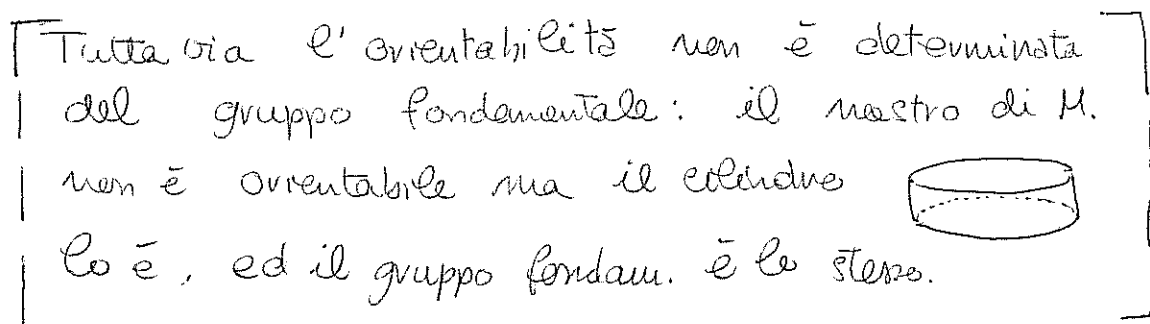 Tuttavia l'orientabilità non è determinata
dal gruppo fondamentale: il nastro di M.
non è orientabile ma il cilindro
lo è, ed il gruppo fondam. è lo stesso.